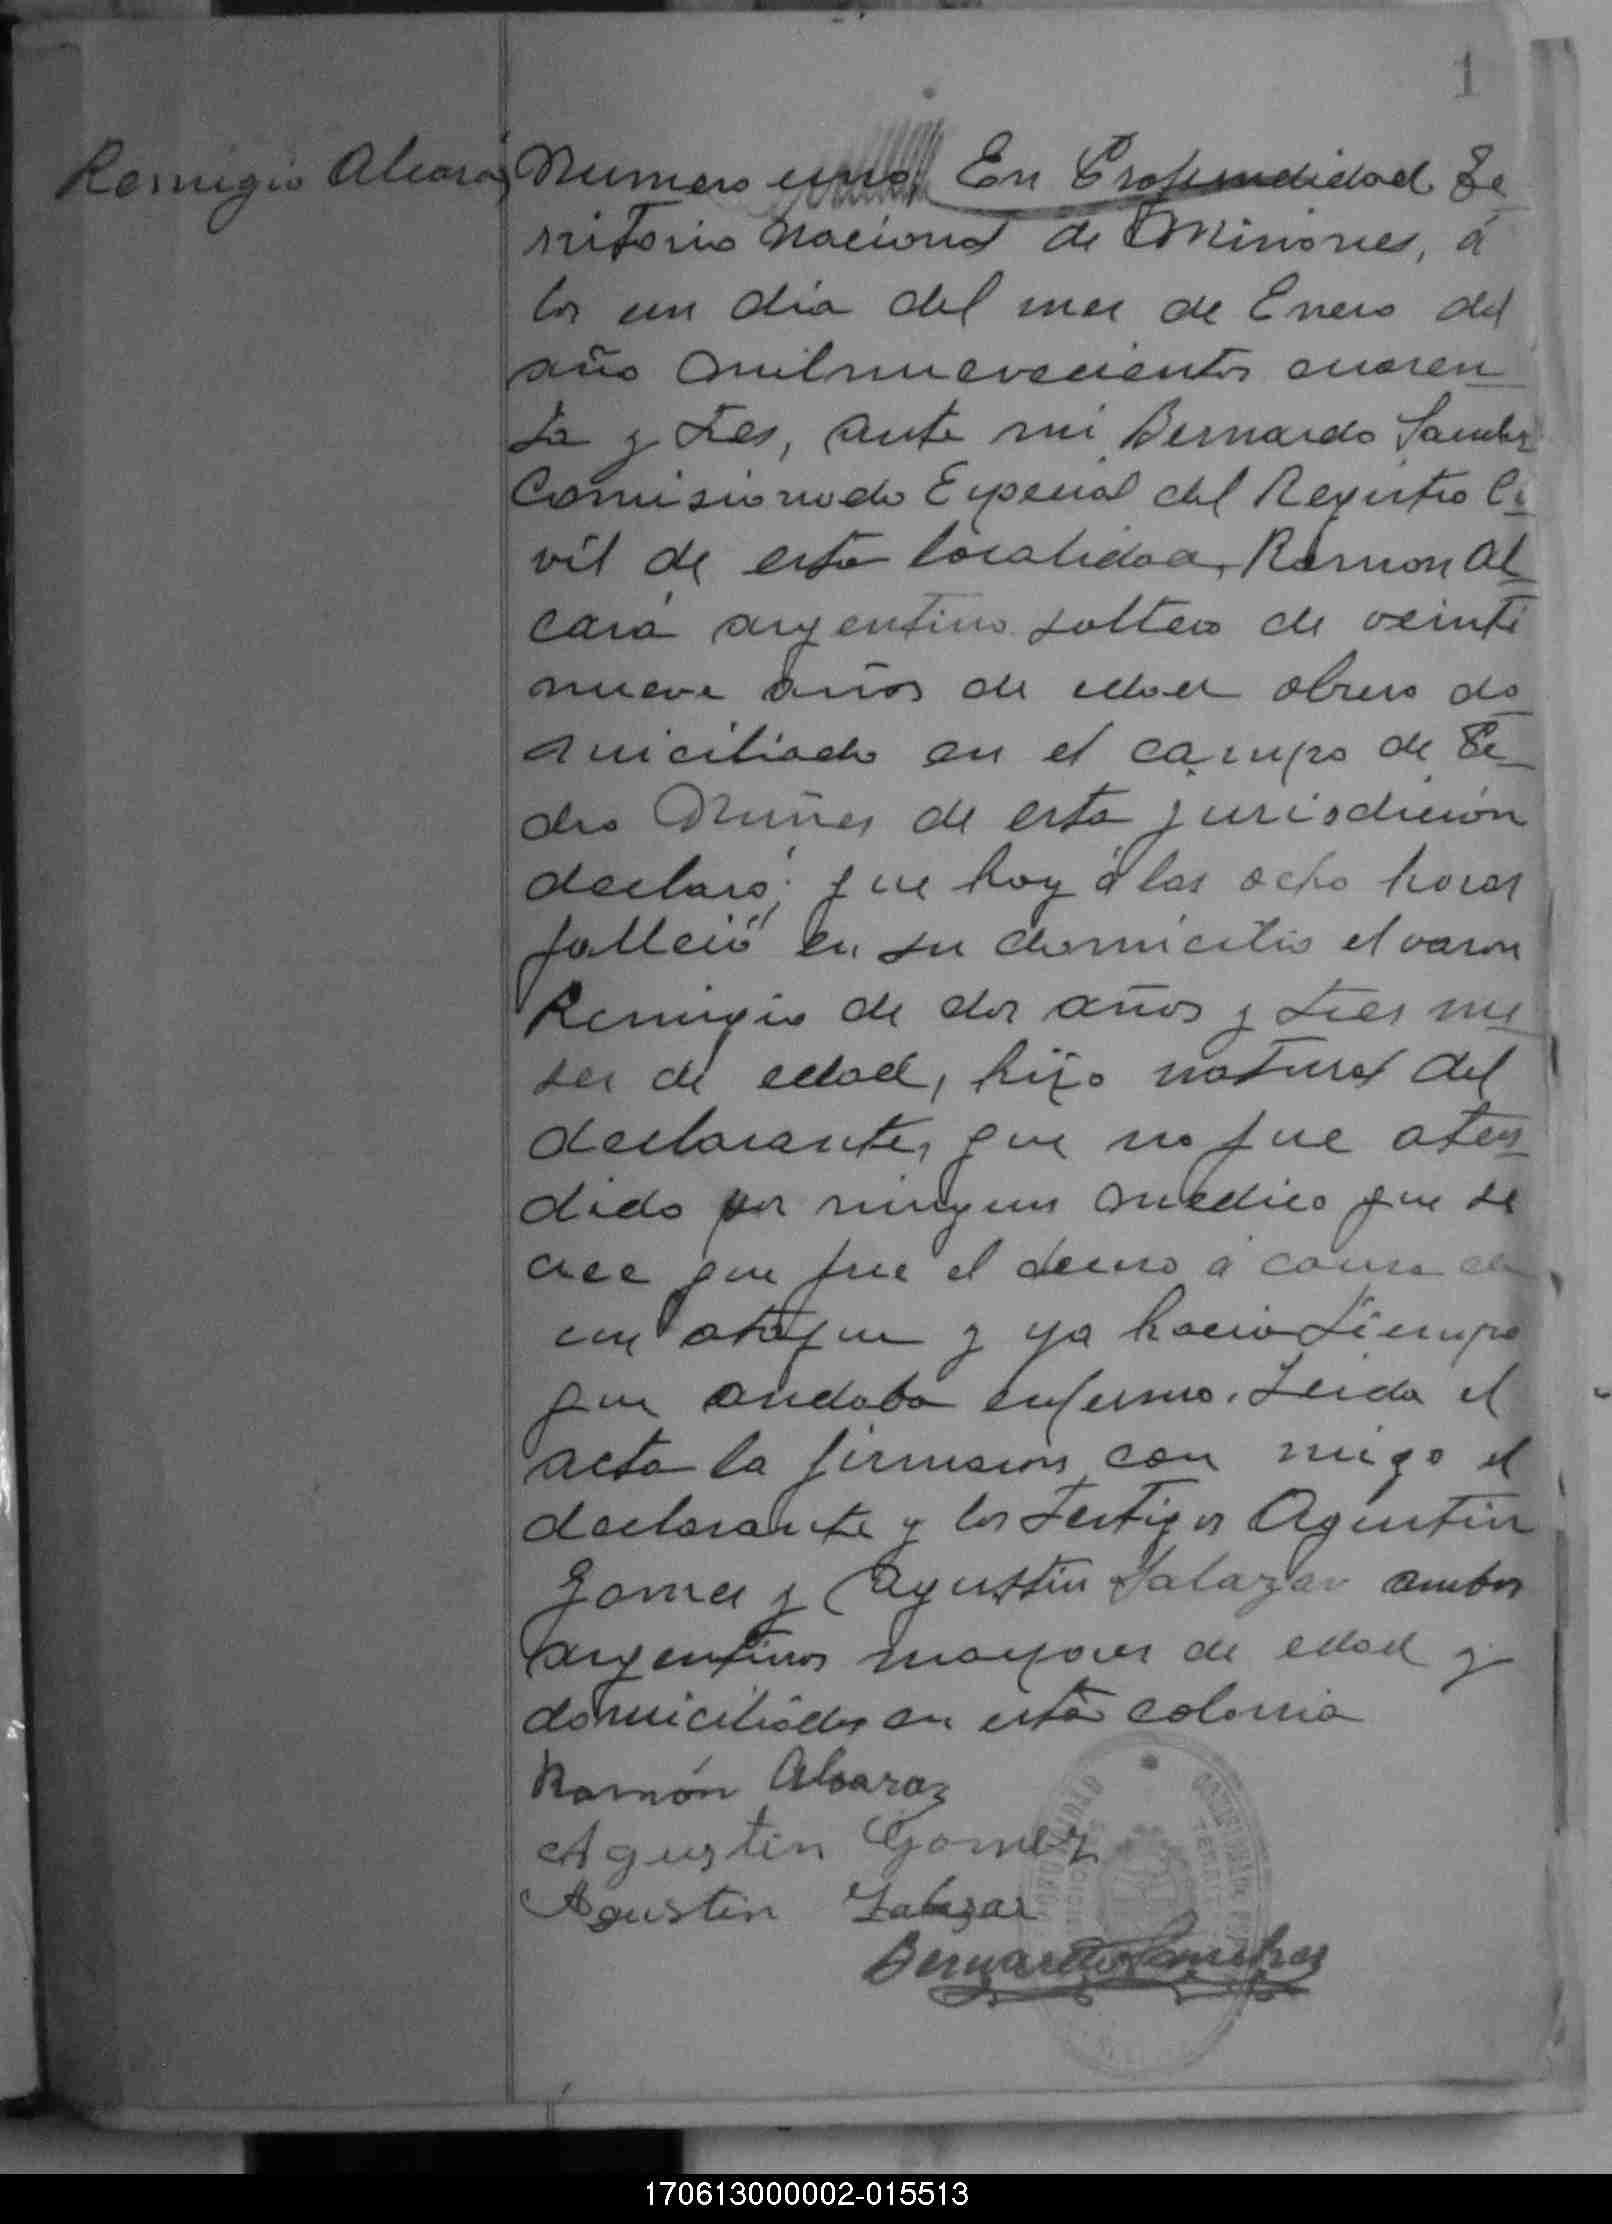 1
Remigio Alcará
Numero uno. En Profundidad Te
rritorio Nacional de Misiones, á
los un dia del mes de Enero del
año milnuevecientos cuaren
ta y tres, ante mi Bernardo
Comisionado Especial del Registro Ci
vil de esta localidad, Ramon Al
cará argentino soltero de veinti
nueve años de edad obrero do
miciliado en el campo de Pe
dro Nuñes de esta jurisdición
declaró; que hoy á las ocho horas
falleció en su domicilio el varon
Remigio de dos años y tres me
ses de edad, hijo natural del
declarante, que no fue aten
dido por ningun medico que se
cree que fue el deceso á causa de
un ataque y ya hacia tiempo
que andaba enfermo. Leida el
acta la firmaron con migo el
declarante y los testigos Agustin
Gomes y Agustin Salazar ambos
argentinos mayores de edad y
domiciliados en esta colonia
Ramón Alcaraz
Agustin Gomez
Agustin Salazar
Bernardo
170613000002-015513